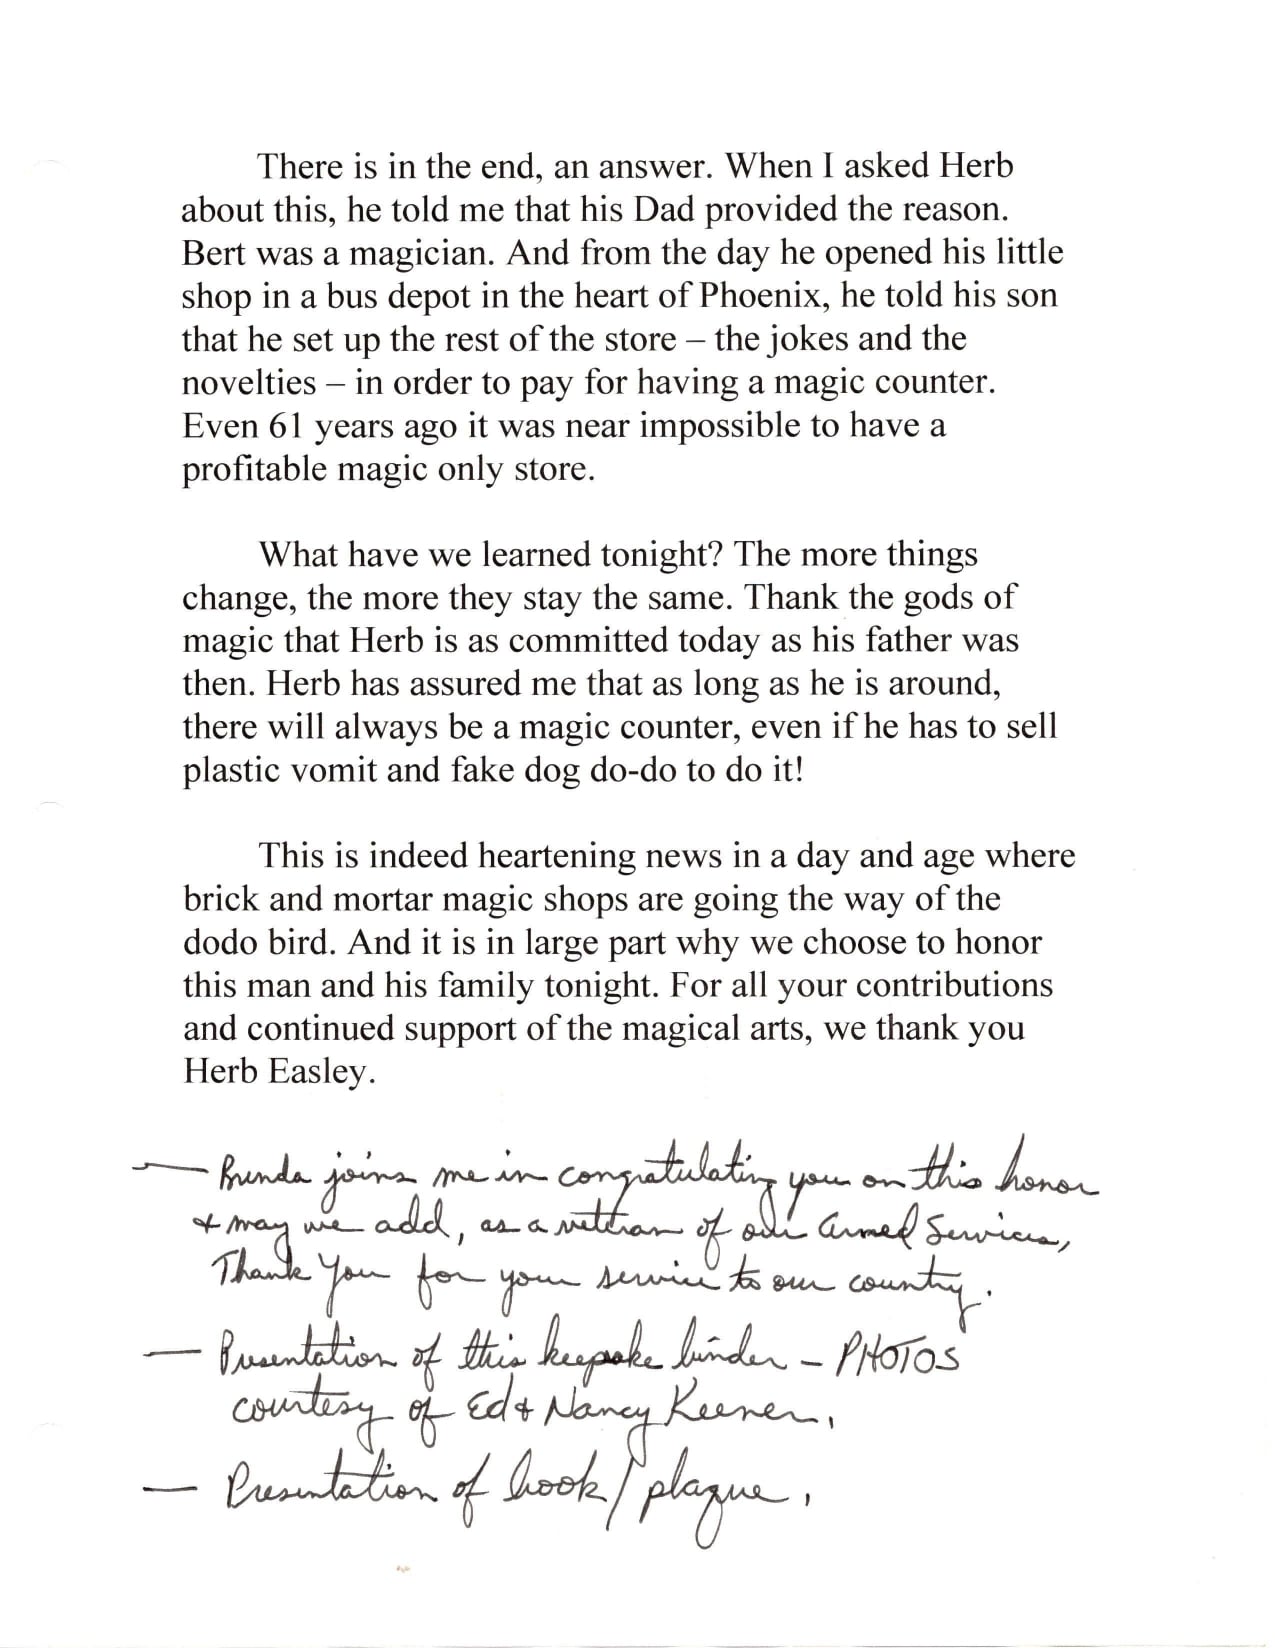 There is in the end, an answer. When I asked Herb
about this, he told me that his Dad provided the reason.
Bert was a magician. And from the day he opened his little
shop in a bus depot in the heart of Phoenix, he told his son
that he set up the rest of the store – the jokes and the
novelties – in order to pay for having a magic counter.
Even 61 years ago it was near impossible to have a
profitable magic only store.
What have we learned tonight? The more things
change, the more they stay the same. Thank the gods of
magic that Herb is as committed today as his father was
then. Herb has assured me that as long as he is around,
there will always be a magic counter, even if he has to sell
plastic vomit and fake dog do-do to do it!
This is indeed heartening news in a day and age where
brick and mortar magic shops are going the way of the
dodo bird. And it is in large part why we choose to honor
this man and his family tonight. For all your contributions
and continued support of the magical arts, we thank you
Herb Easley.
— Brenda joins me in congratulating you on this honor
& may we add, as a veteran of our Armed Services,
Thank You for your service to our country.
— Presentation of this keepsake binder – PHOTOS
courtesy of Ed & Nancy Keener.
— Presentation of book/plaque.